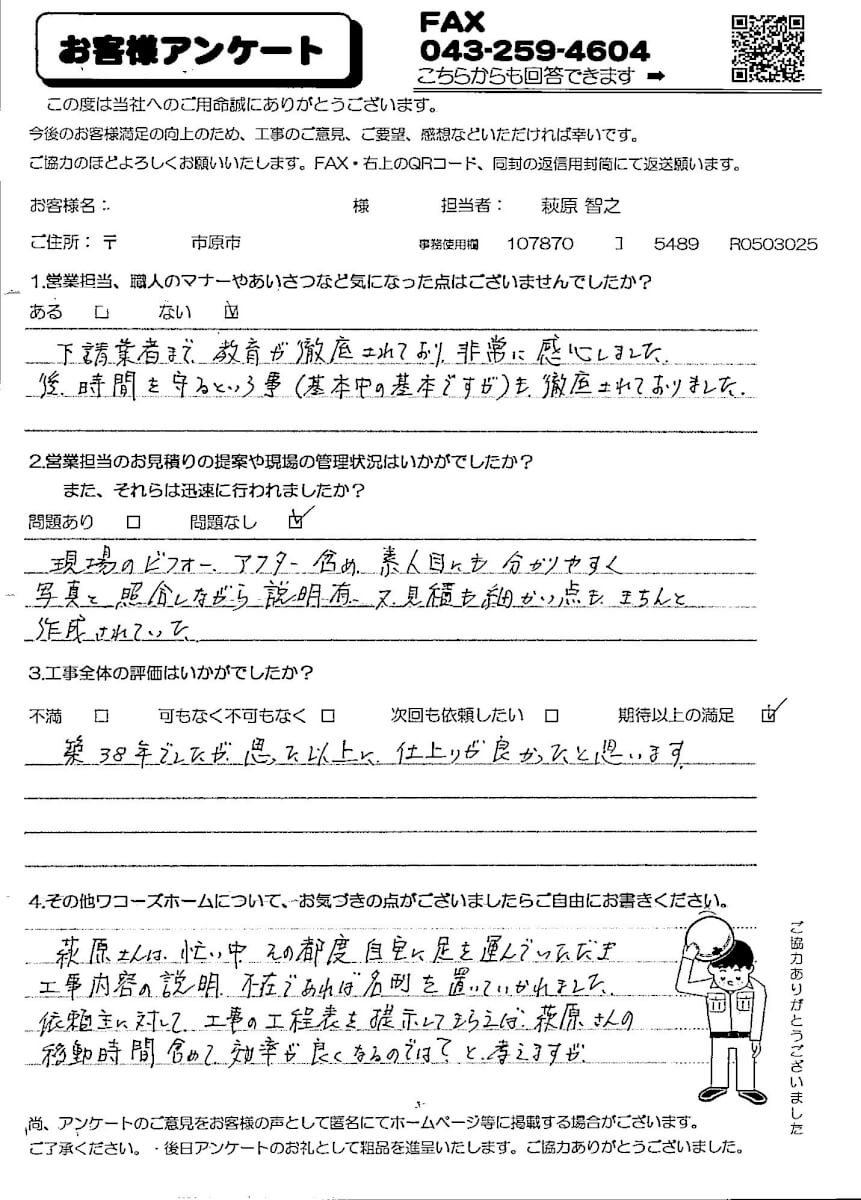 お客様アンケート
FAX
043-259-4604
こちらからも回答できます ➡
この度は当社へのご用命誠にありがとうございます。
今後のお客様満足の向上のため、工事のご意見、ご要望、感想などいただければ幸いです。
ご協力のほどよろしくお願いいたします。FAX・右上のQRコード、同封の返信用封筒にて返送願います。
お客様名： 様 担当者： 萩原 智之
ご住所：〒 市原市 事務使用欄 107870 コ 5489 R0503025
1.営業担当、職人のマナーやあいさつなど気になった点はございませんでしたか？
ある □ ない ☑
下請業者まで、教育が徹底されており、非常に感心しました。
後、時間を守るという事(基本中の基本ですが)も、徹底されておりました。
2.営業担当のお見積りの提案や現場の管理状況はいかがでしたか？
また、それらは迅速に行われましたか？
問題あり □ 問題なし ☑
現場のビフォー、アフター含め、素人目にも分かりやすく
写真と照合しながら説明有、又、見積も細かい点も、きちんと
作成されていた。
3.工事全体の評価はいかがでしたか？
不満 □ 可もなく不可もなく □ 次回も依頼したい □ 期待以上の満足 ☑
築38年でしたが、思った以上に、仕上りが良かったと思います。
4.その他ワコーズホームについて、お気づきの点がございましたらご自由にお書きください。
萩原さんは、忙い中、その都度、自宅に足を運んでいただき
工事内容の説明、不在であれば名刺を置いていかれました。
依頼主に対して、工事の工程表を提示してもらえば、萩原さんの
移動時間含めて、効率が良くなるのでは？と、考えますが、
ご協力ありがとうございました
尚、アンケートのご意見をお客様の声として匿名にてホームページ等に掲載する場合がございます。
ご了承ください。・後日アンケートのお礼として粗品を進呈いたします。ご協力ありがとうございました。